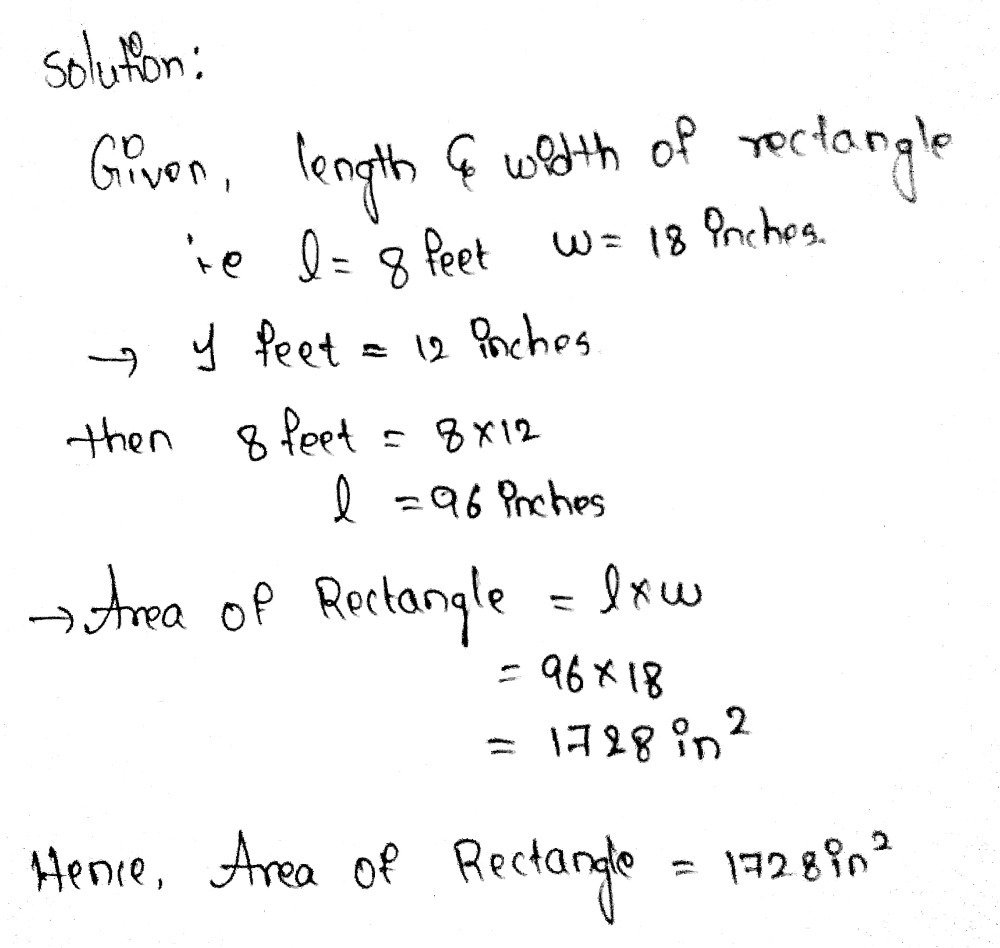 Solution:
Given, length & width of rectangle
ie l = 8 feet w = 18 inches.
→ 1 feet = 12 inches
then 8 feet = 8×12
l = 96 inches
→ Area of Rectangle = l×w
= 96×18
= 1728 in²
Hence, Area of Rectangle = 1728in²